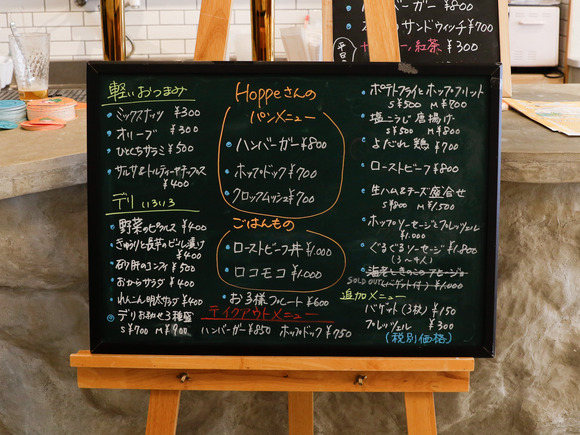 軽いおつまみ
ミックスナッツ ¥300
オリーブ ¥300
ひとくちサラミ ¥500
サルサ&トルティーヤチップス
¥400
デリ いろいろ
野菜のピクルス ¥400
きゅうりと長芋のビール漬け
¥400
砂肝のコンフィ ¥500
おからサラダ ¥400
れんこん明太サラダ ¥400
デリ お勧め3種盛
S ¥700 M ¥900
Hoppeさんの
パンメニュー
ハンバーガー ¥800
ホップドッグ ¥700
クロックムッシュ ¥700
ごはんもの
ローストビーフ丼 ¥1,000
ロコモコ ¥1,000
お子様プレート ¥600
テイクアウトメニュー
ハンバーガー ¥850 ホップドック ¥750
ポテトフライとホップフリット
S ¥500 M ¥800
塩こうじ唐揚げ
S ¥500 M ¥800
よだれ鶏 ¥700
ローストビーフ ¥800
生ハム&チーズ盛合せ
S ¥800 M ¥1,500
ホップソーセージとプレッツェル
¥1,000
ぐるぐるソーセージ ¥1,800
(3〜4人)
海老ときのこのアヒージョ
SOLD OUT (バゲット付) ¥1,000
追加メニュー
バゲット(3枚) ¥150
プレッツェル ¥300
(税別価格)
バーガー ¥800
サンドウィッチ ¥700
紅茶 ¥300